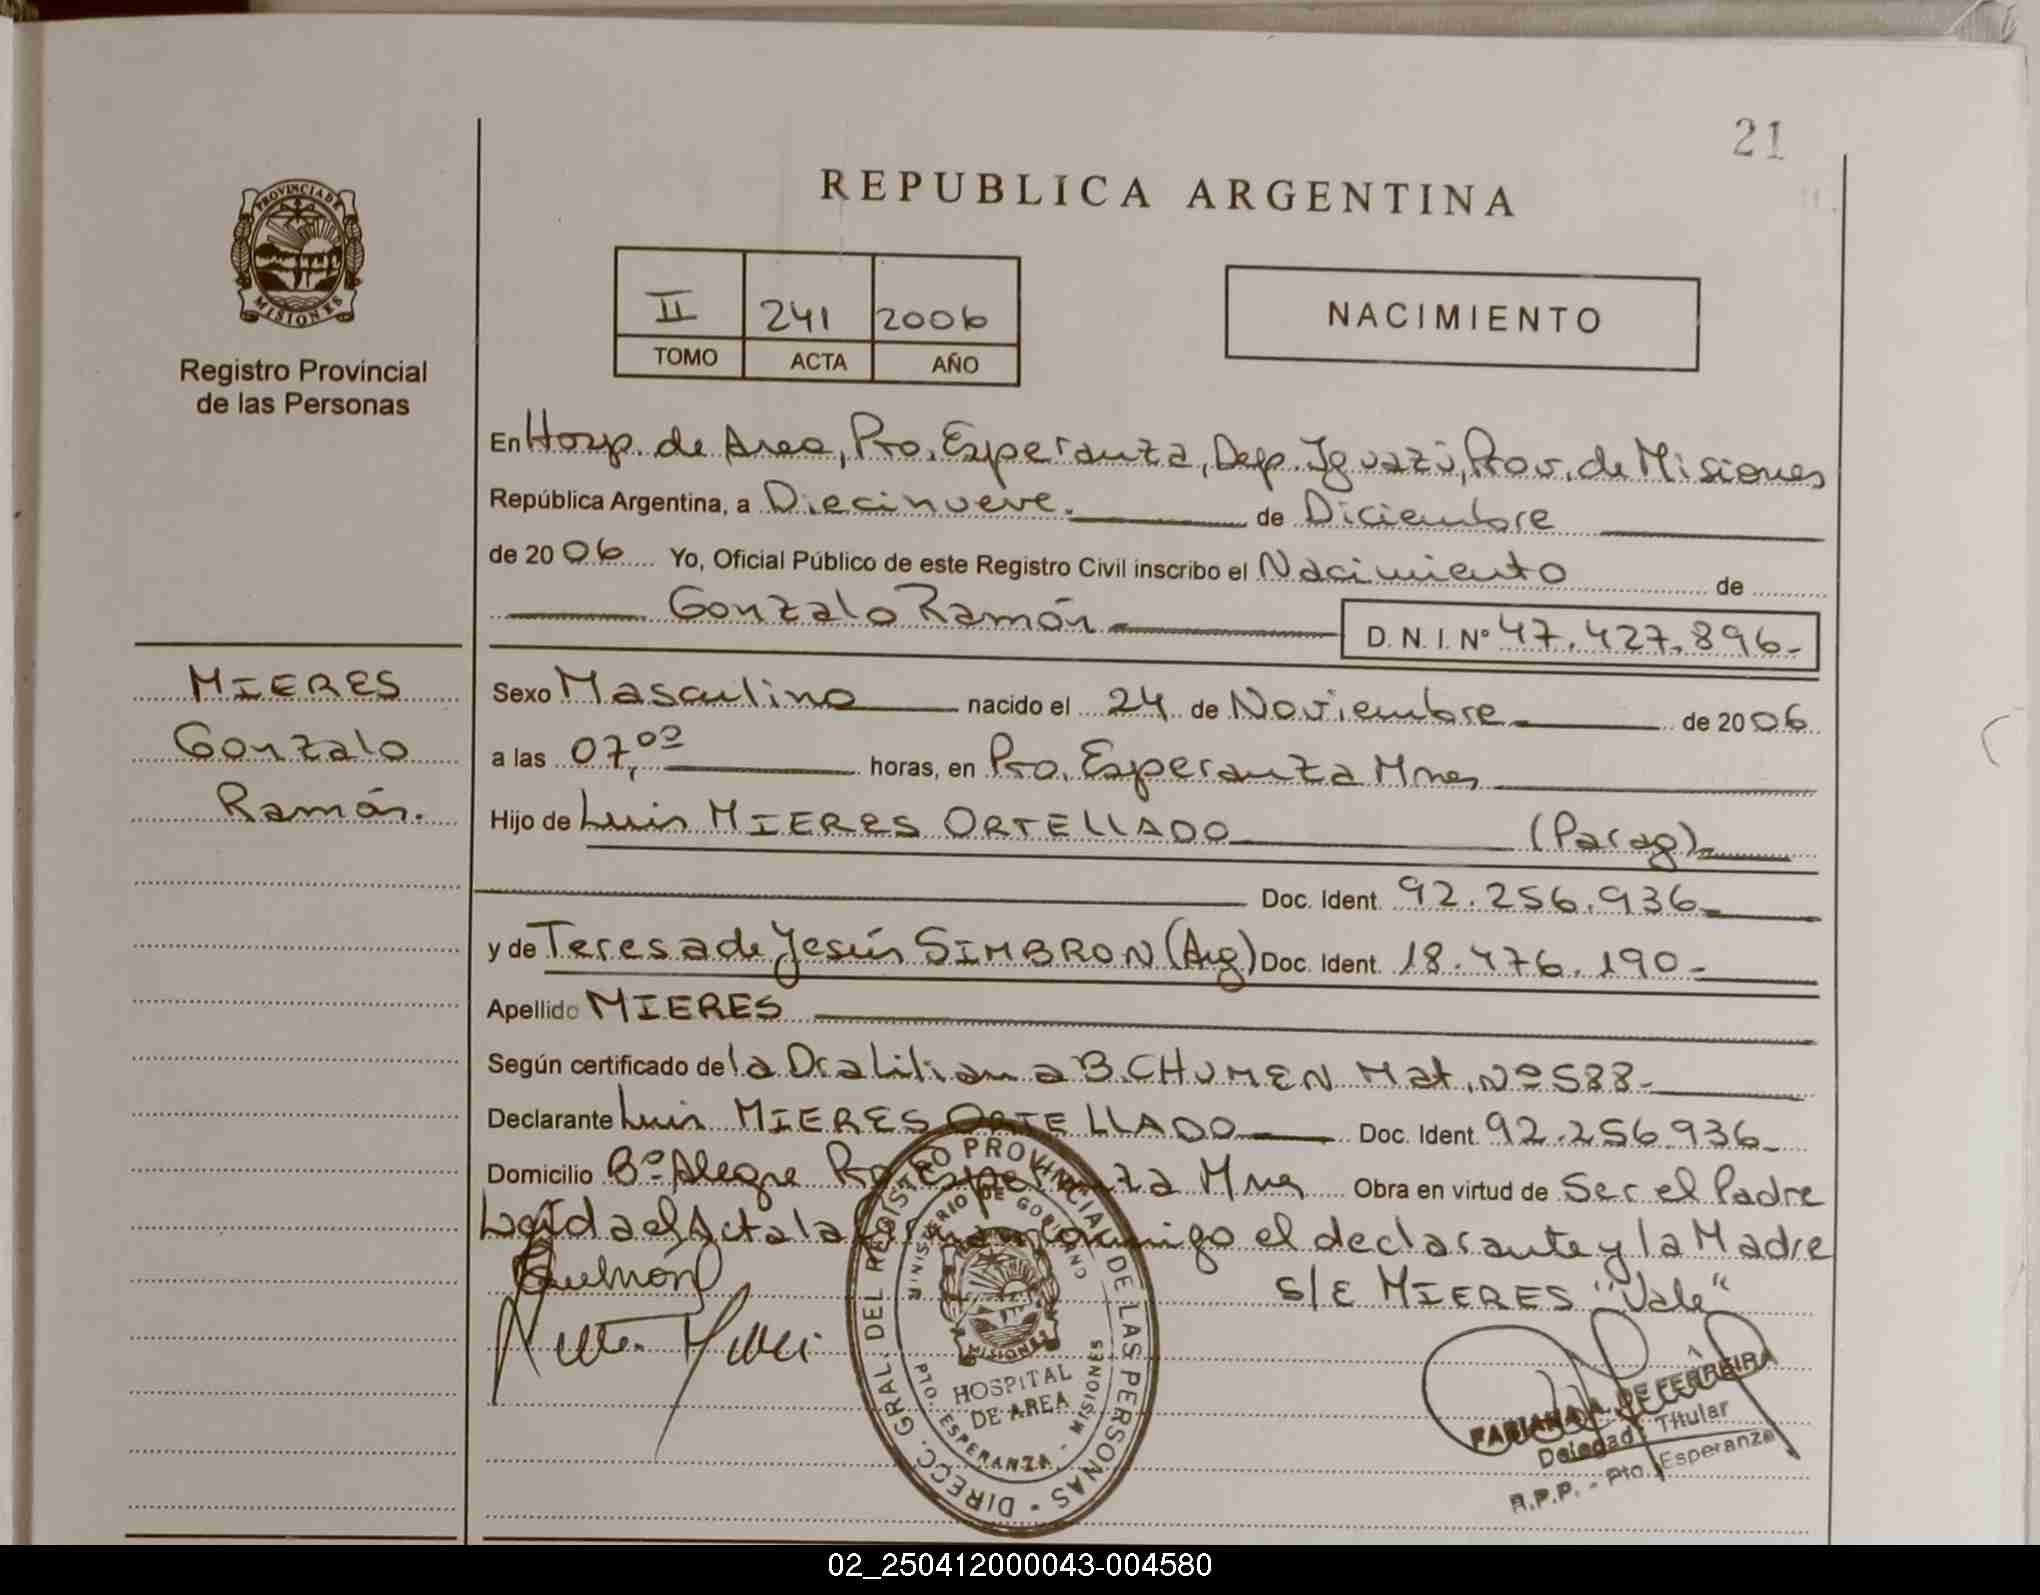 21
REPUBLICA ARGENTINA
PROVINCIA DE
MISIONES
Registro Provincial
de las Personas
II 241 2006
TOMO ACTA AÑO
NACIMIENTO
En Hosp. de Area, Pto. Esperanza, Dep. Iguazú, Prov. de Misiones
República Argentina, a Diecinueve. de Diciembre
de 2006 Yo, Oficial Público de este Registro Civil inscribo el Nacimiento de
Gonzalo Ramón D.N.I. Nº 47.427.896-
MIERES
Gonzalo
Ramón.
Sexo Masculino nacido el 24 de Noviembre de 2006
a las 07,00 horas, en Pto. Esperanza Mnes
Hijo de Luis MIERES ORTELLADO (Parag)
Doc. Ident. 92.256.936-
y de Teresa de Jesús SIMBRON (Arg) Doc. Ident. 18.476.190-
Apellido MIERES
Según certificado de la Dra Liliana B. CHUMEN Mat. Nº 588-
Declarante Luis MIERES ORTELLADO Doc. Ident. 92.256.936-
Domicilio Bº Alegre Pto Esperanza Mnes Obra en virtud de Ser el Padre
Leída el Acta la firman conmigo el declarante y la Madre
S/E MIERES "Vale"
DIRECC. GRAL. DEL REGISTRO PROVINCIAL DE LAS PERSONAS
MINISTERIO DE GOBIERNO
MISIONES
HOSPITAL
DE AREA
PTO. ESPERANZA - MISIONES
FABIANA A. DE FERREIRA
Delegada Titular
R.P.P. - Pto. Esperanza
02_250412000043-004580